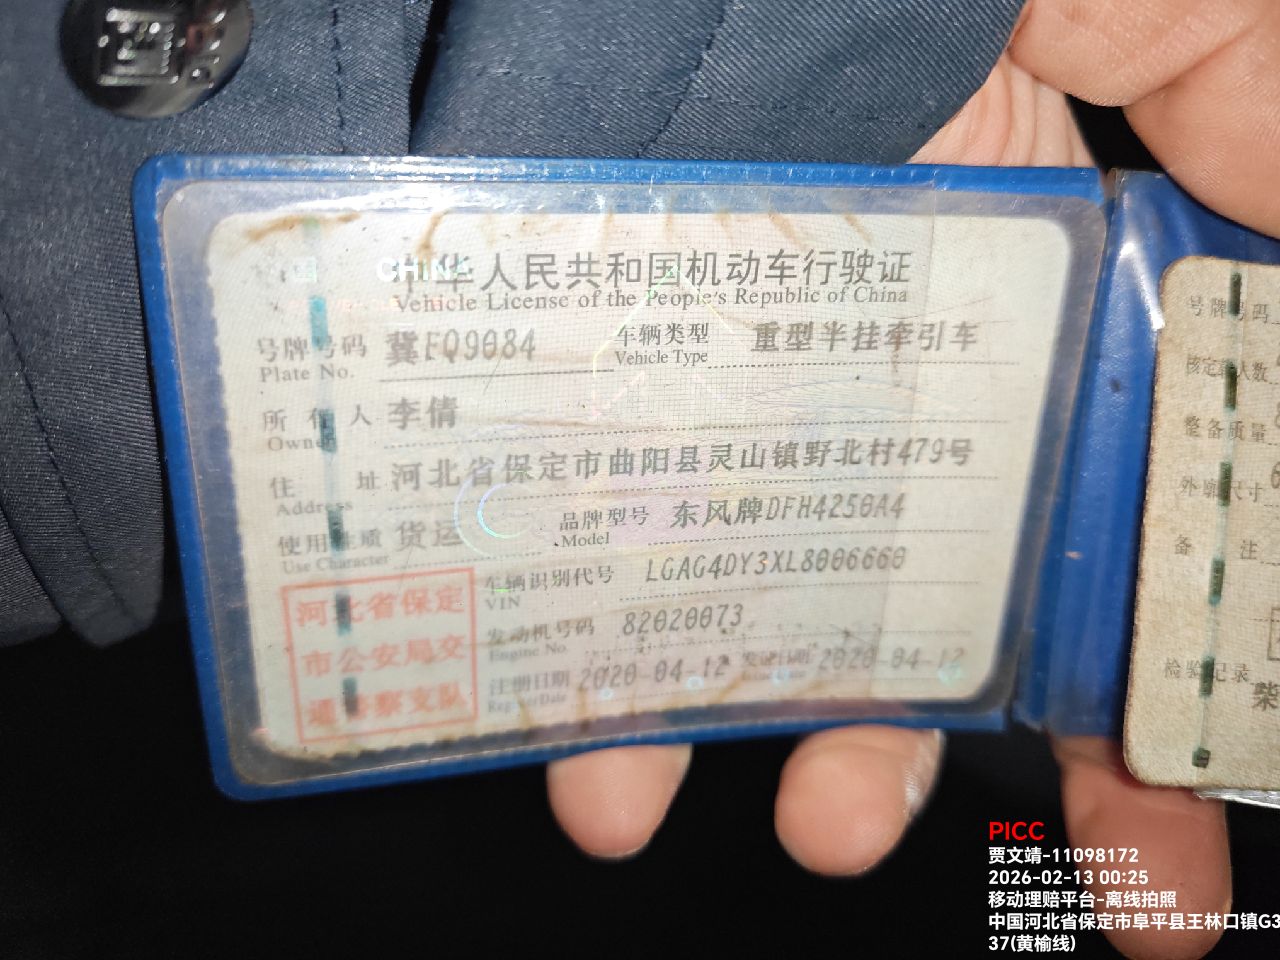 中华人民共和国机动车行驶证
Vehicle License of the People's Republic of China
号牌号码 冀FQ9084 车辆类型 重型半挂牵引车
Plate No. Vehicle Type
所有人 李倩
Owner
住址 河北省保定市曲阳县灵山镇野北村479号
Address
使用性质 货运 品牌型号 东风牌DFH4250A4
Use Character Model
车辆识别代号 LGAG4DY3XL8006660
VIN
发动机号码 82020073
Engine No.
注册日期 2020-04-12 发证日期 2020-04-12
Register Date Issue Date
河北省保定
市公安局交
通警察支队
号牌号码
核定载人数
整备质量
外廓尺寸
备注
检验记录
柴
PICC
贾文靖-11098172
2026-02-13 00:25
移动理赔平台-离线拍照
中国河北省保定市阜平县王林口镇G3
37(黄榆线)